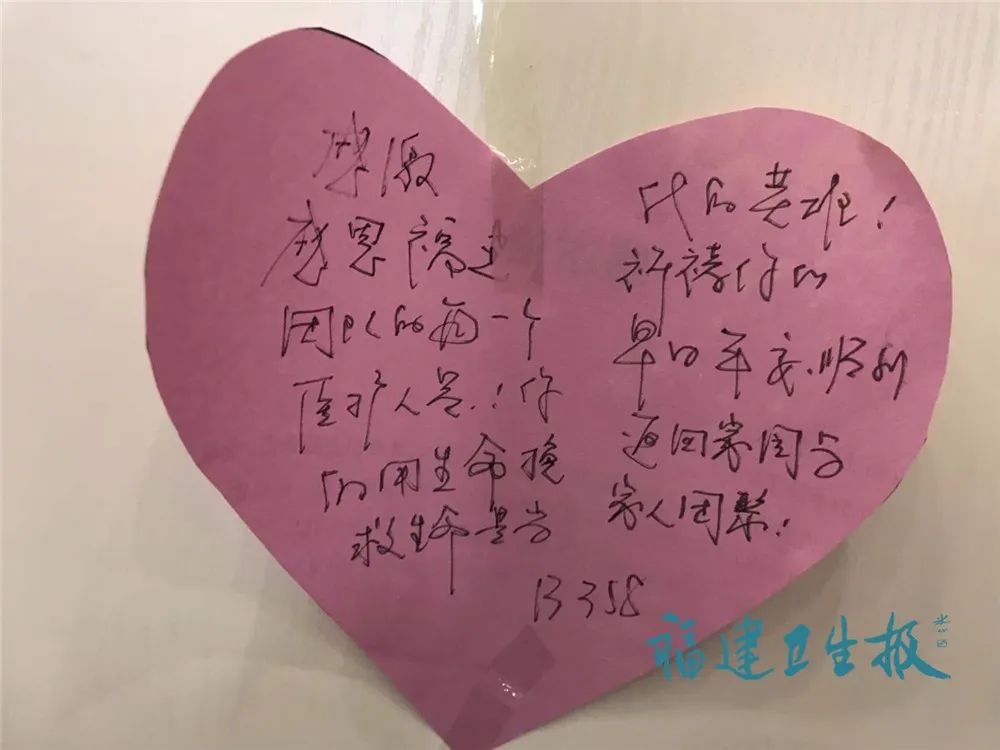 感激
感恩福建
团队的每一个
医护人员！你
们用生命挽
救生命是当
代的英雄！
祈祷你们
早日平安、顺利
返回家园与
家人团聚！
B358
福建卫生报